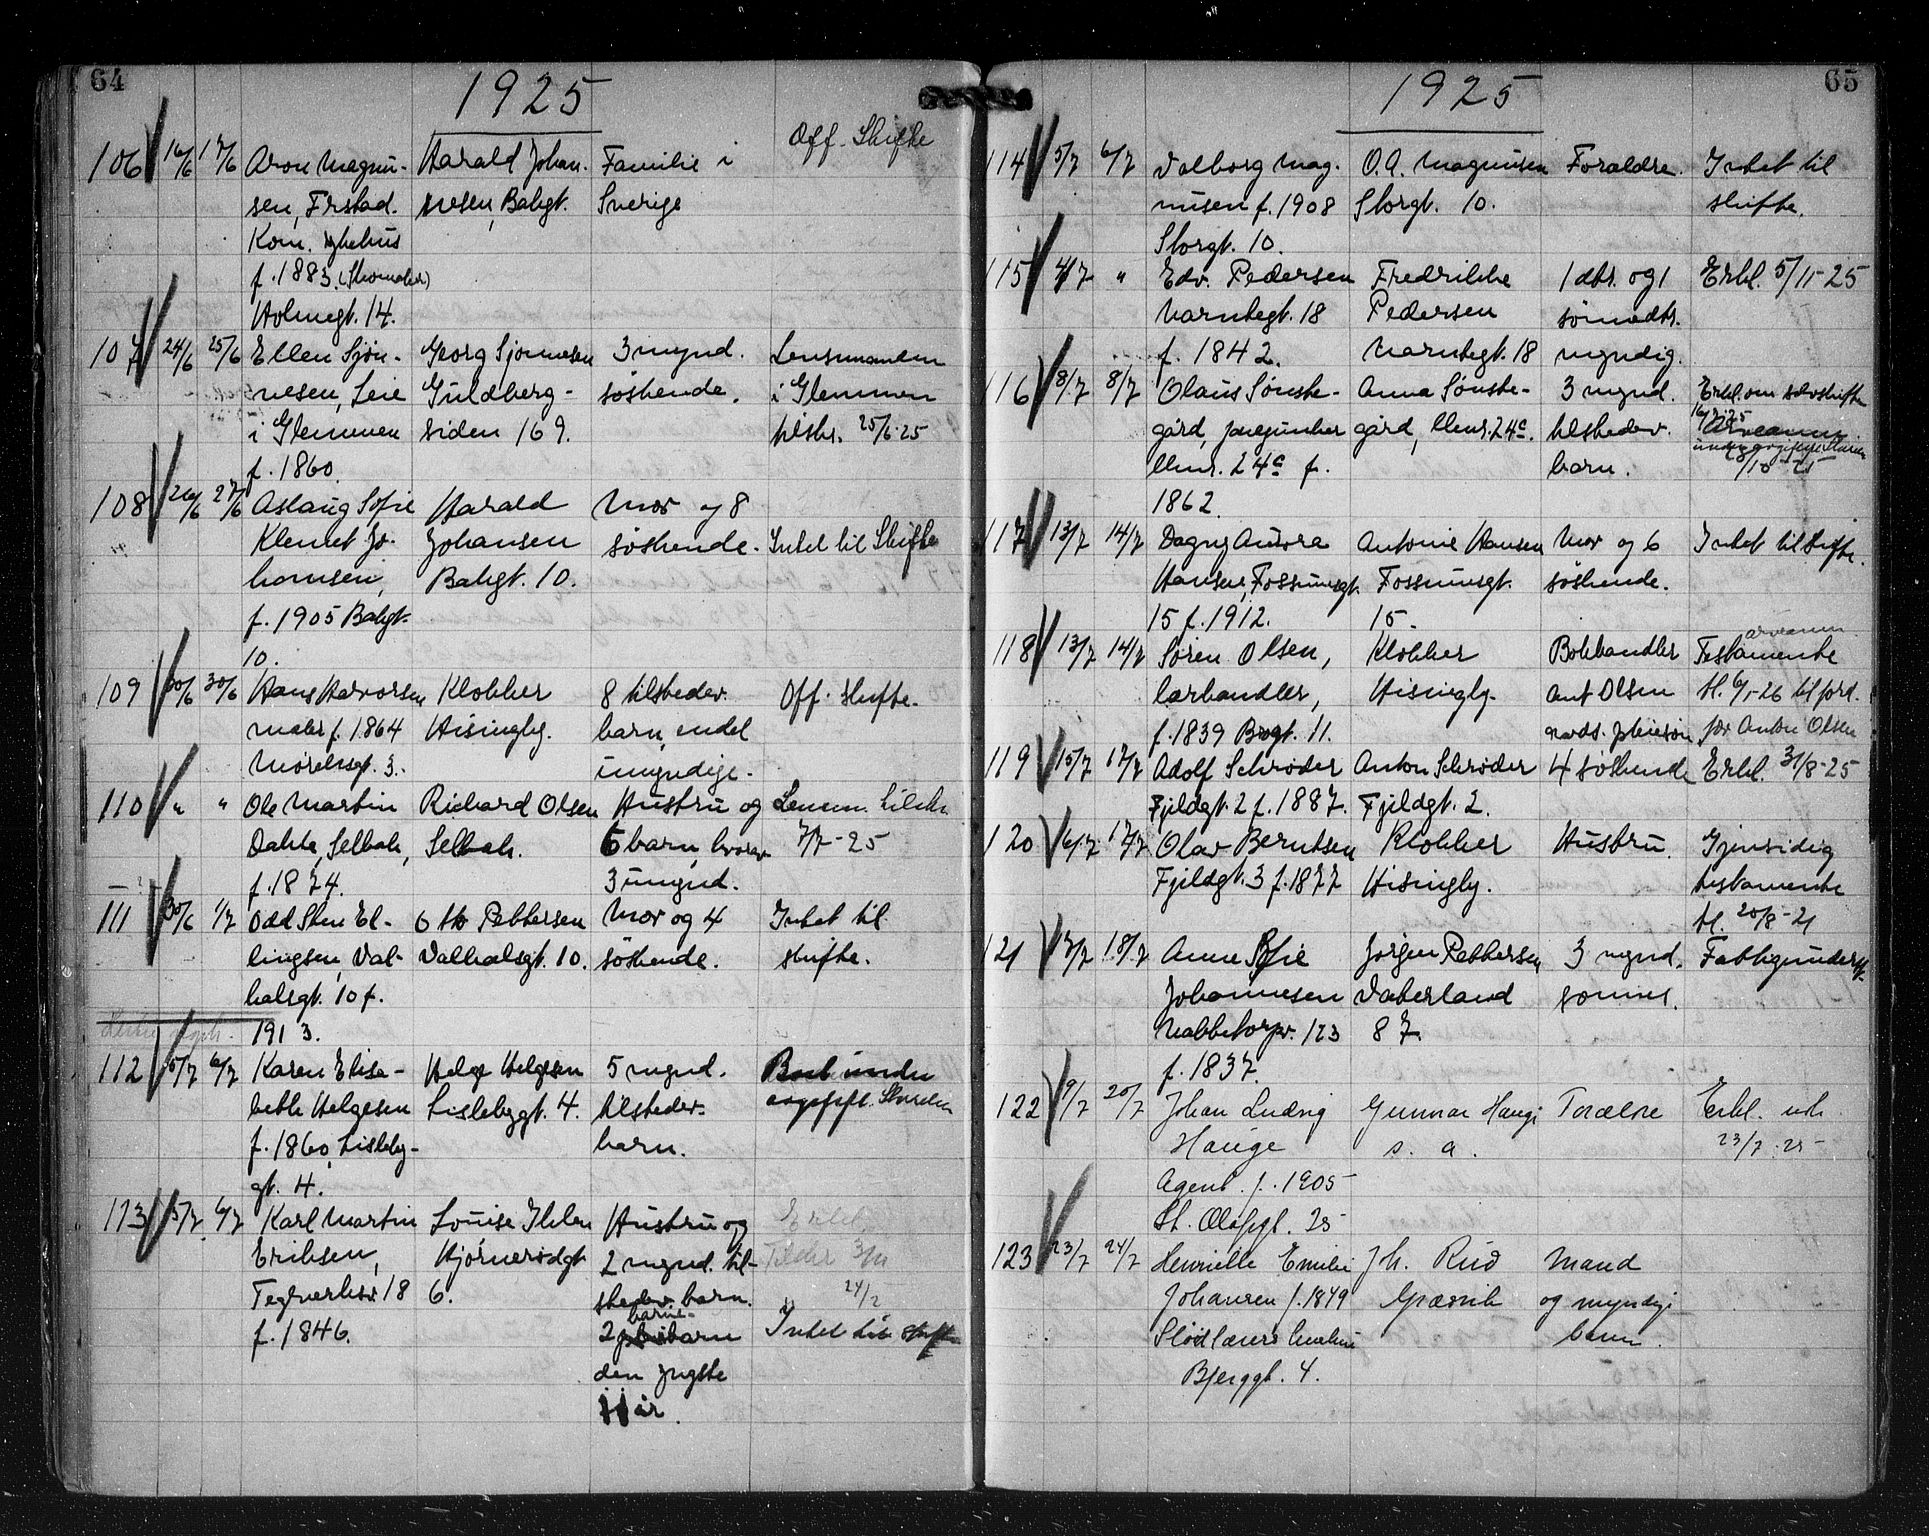 64
1925
106 16/6 17/6 Aron Magnu- Harald Johan- Familie i Off. Skifte
sen, Frstad. nesen, Bakgt. Sverige
Kom. sykehus
f. 1883. (Skomaker)
Holmegt. 14.
107 24/6 25/6 Ellen Sjøn- Georg Sjønnesen 3 mynd. Lensmanden
nesen, Leie Guldberg- søskende. i Glemmen
i Glemmen siden 169. tilskr. 25/6-25
f. 1860.
108 26/6 27/6 Aslaug Sofie Harald Mor og 8
Klemet Jo- Johansen søskende. Intet til Skifte
hansen, Bakgt. 10.
f. 1905 Bakgt.
10.
109 30/6 30/6 Hans Halvorsen Klokker 8 tilstedev. Off. skifte.
maler f. 1864 Hisingby. barn, endel
3. umyndige.
110 " " Ole Martin Richard Olsen Hustru og Lensm. tilskr.
Dahle, Selbak, Selbak. 6 barn, hvorav 7/7-25
f. 1874. 3 umynd.
111 30/6 1/7 Odd Sten El- Otto Pettersen Mor og 4 Intet til
lingsen, Val- Valhalsgt. 10. søskende. skifte.
halsgt. 10 f.
1913.
112 5/7 6/7 Karen Elisa- Helge Helgesen 5 mynd. Boet under
beth Helgesen Lislebygt. 4. tilstedev.
f. 1860, Lisleby- barn.
gt. 4.
113 5/7 6/7 Karl Martin Louise Hustru og Erkl.
Eriksen, Hjørnerødgt 2 mynd. til- Tilskr 3/11
18 6. stedev. barn. 24/2
f. 1846. 2 barne-barn Intet til skifte
den yngste
11 år.
65
1925
114 5/7 6/7 Valborg Mag- O. A. Magnusen Forældre. Intet til
nusen f. 1908 Storgt. 10. skifte.
Storgt. 10.
115 4/7 " Edv. Pedersen Fredrikke 1 dtr. og 1 Erkl. 5/11-25
Varntegt. 18 Pedersen sønnedtr.
f. 1842. Varntegt. 18 myndig.
116 8/7 8/7 Olaus Sønste- Anna Sønste- 3 mynd. Erkl. om selvskifte
gård, gård, 24c. tilstedev. 16/7 25
24c f. barn. /10-25
1862.
117 13/7 14/7 Dagny Aurora Antonie Hansen Mor og 6 Intet til skifte.
Hansen, Fossumsgt. Fossumsgt. søskende.
15 f. 1912. 15.
118 13/7 14/7 Søren Olsen, Klokker Bokhandler Testamente
lærhandler, Hisingby. Ant Olsen tl. 6/1-26 til ford.
f. 1839 Brogt. 11. avds. pleiesøn for Anton Olsen
119 15/7 17/7 Adolf Schrøder Anton Schrøder 4 søskende Erkl. 31/8-25
Fjeldgt. 2 f. 1887. Fjeldgt. 2.
120 16/7 17/7 Olav Berntsen Klokker Hustru. Gjensidig
Fjeldgt. 3 f. 1877 Hisingby. testamente
tl. 20/8-21
121 17/7 18/7 Anne Sofie Jørgen Pettersen 3 mynd. Fattigunderst.
Johannesen Vaterland sønner.
Nabbetorpv. 123 87
f. 1837.
122 19/7 20/7 Johan Ludvig Gunnar Hauge Forældre Erkl. utk.
Hauge s. a. 23/7-25
Agent f. 1905
St. Olafsgt. 25
123 23/7 24/7 Henriette Emilie Jh. Ruud Mand
Johansen f. 1849 Græsvik og myndige
barn.
Bjerggt. 4.